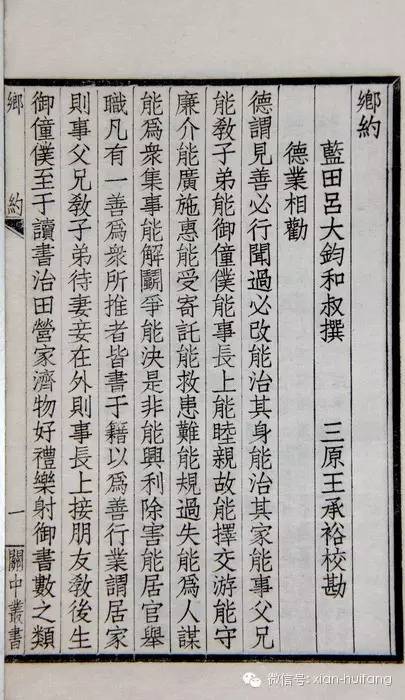 鄉約
藍田呂大鈞和叔撰　三原王承裕校勘
德業相勸
德謂見善必行聞過必改能治其身能治其家能事父兄
能教子弟能御僮僕能事長上能睦親故能擇交游能守
廉介能廣施惠能受寄託能救患難能規過失能為人謀
能為衆集事能解鬬爭能決是非能興利除害能居官舉
職凡有一善為衆所推者皆書于籍以為善行業謂居家
則事父兄教子弟待妻妾在外則事長上接朋友教後生
御僮僕至于讀書治田營家濟物好禮樂射御書數之類
鄉約　一　關中叢書
微信号: xian-huifang